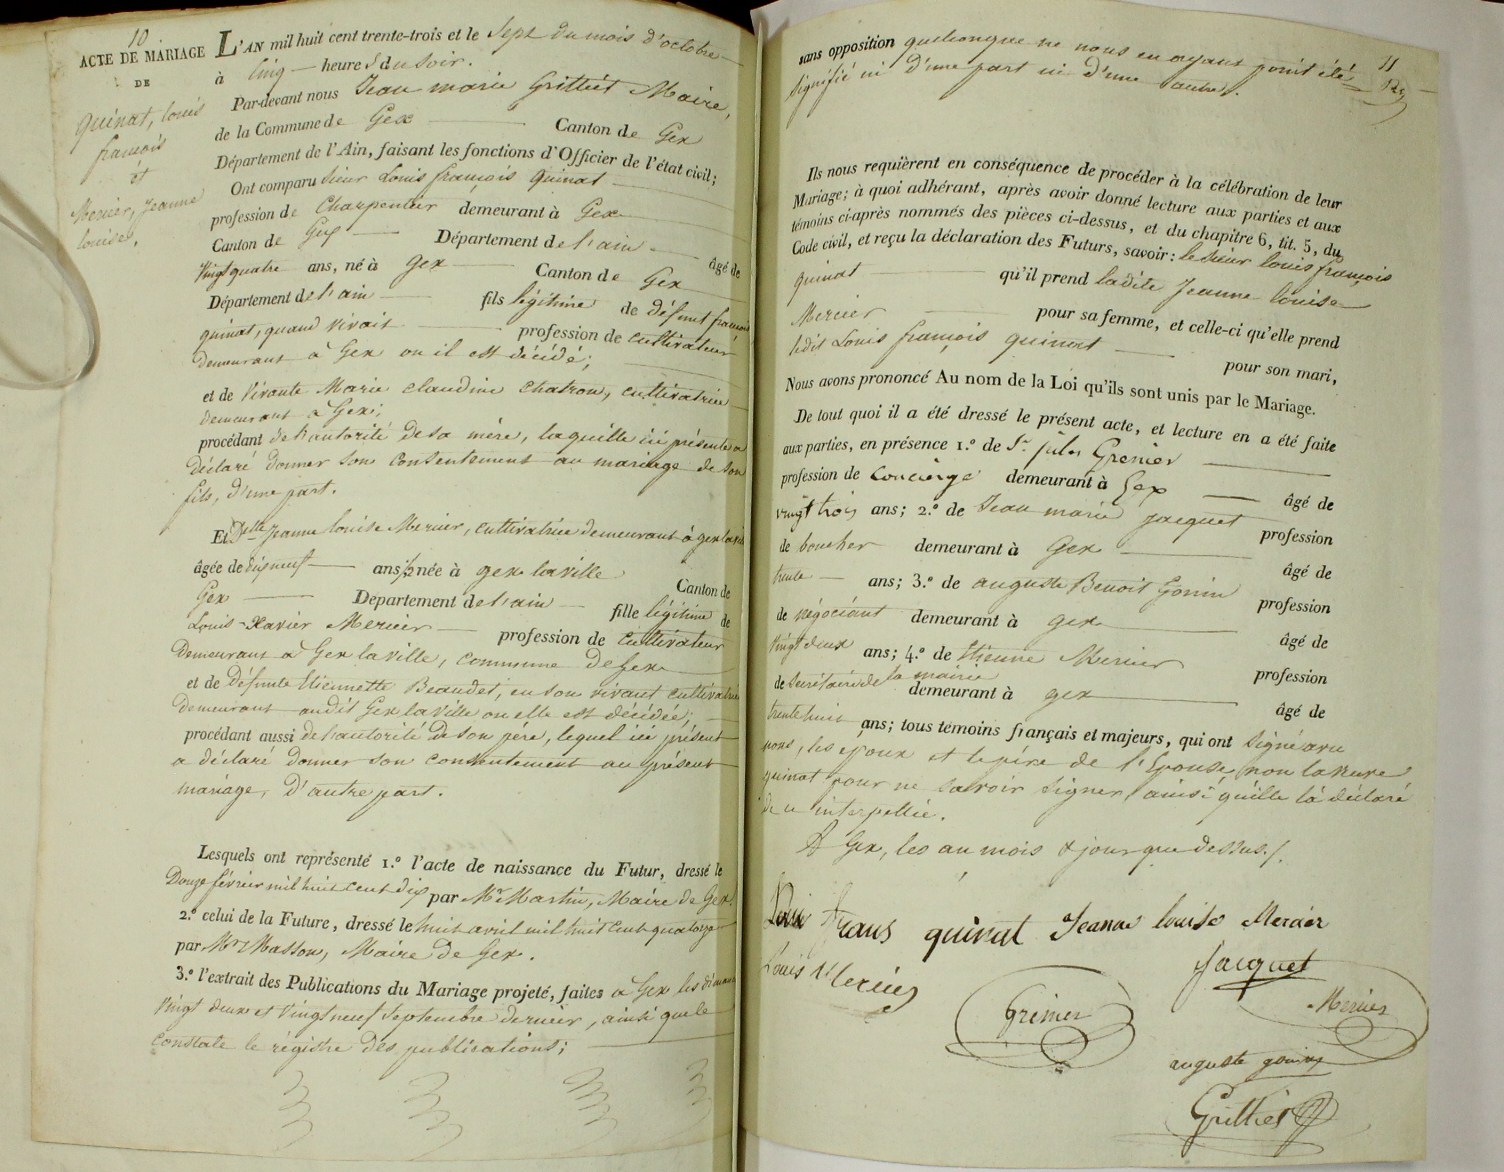 10
ACTE DE MARIAGE
DE
quinat, louis
françois
et
Mercier, Jeanne
louise.
L'AN mil huit cent trente-trois et le Sept du mois d'octobre
à Cinq heures du soir.
Par-devant nous Jean marie Grilliet Maire,
de la Commune de Gex Canton de Gex
Département de l'Ain, faisant les fonctions d'Officier de l'état civil;
Ont comparu Sieur Louis françois quinat
profession de Charpentier demeurant à Gex
Canton de Gex Département de l'ain âgé de
Vingt quatre ans, né à gex Canton de Gex
Département de l'ain fils légitime de défunt françois
quinat, quand vivait profession de cultivateur
demeurant à Gex ou il est décédé;
et de Vivante Marie Claudine Chatron, cultivatrice
demeurant à Gex;
procédant de l'autorité de sa mère, laquelle ici présente a
déclaré donner son consentement au mariage de son
fils, d'une part.
Et Dlle Jeanne louise Mercier, cultivatrice demeurant à gex la ville
âgée de dix neuf ans ½ née à gex la ville Canton de
Gex Département de l'ain fille légitime de
Louis-Xavier Mercier profession de Cultivateur
demeurant à Gex la ville, commune de Gex
et de défunte Etiennette Beaudet, en son vivant cultivatrice
demeurant audit Gex la Ville ou elle est décédée;
procédant aussi de l'autorité de son père, lequel ici présent
a déclaré donner son consentement au présent
mariage, d'autre part.
Lesquels ont représenté 1.º l'acte de naissance du Futur, dressé le
Douze février mil huit cent dix par Mr Martin, Maire de Gex.
2.º celui de la Future, dressé le huit avril mil huit cent quatorze
par Mr Masson, Maire de Gex.
3.º l'extrait des Publications du Mariage projeté, faites à Gex les dimanches
Vingt deux et Vingt neuf Septembre dernier, ainsi que le
Constate le régistre des publications;
11
sans opposition quelconque ne nous en ayant point été
signifié ni d'une part ni d'une autre.
Ils nous requièrent en conséquence de procéder à la célébration de leur
Mariage; à quoi adhérant, après avoir donné lecture aux parties et aux
témoins ci-après nommés des pièces ci-dessus, et du chapitre 6, tit. 5, du
Code civil, et reçu la déclaration des Futurs, savoir: le Sieur louis françois
quinat qu'il prend ladite Jeanne louise
Mercier pour sa femme, et celle-ci qu'elle prend
ledit Louis françois quinat pour son mari,
Nous avons prononcé Au nom de la Loi qu'ils sont unis par le Mariage.
De tout quoi il a été dressé le présent acte, et lecture en a été faite
aux parties, en présence 1.º de Sr. jules Grenier
profession de Concierge demeurant à Gex âgé de
vingt trois ans; 2.º de Jean marie jacquet profession
de boucher demeurant à Gex âgé de
trente ans; 3.º de auguste Benoit Gonin profession
de négociant demeurant à gex âgé de
Vingt deux ans; 4.º de Etienne Mercier profession
de Secrétaire de la mairie demeurant à gex âgé de
trente huit ans; tous témoins français et majeurs, qui ont signé avec
nous, les epoux et le père de l'Epouse, non la veuve
quinat pour ne savoir signer, ainsi qu'elle l'a déclaré
de ce interpellée.
A Gex, les an mois & jour que dessus./.
Loui frans quinat Jeanne louise Mercier
Louis Mercier
Jacquet
Grenier
Mercier
auguste gonin
Grilliet